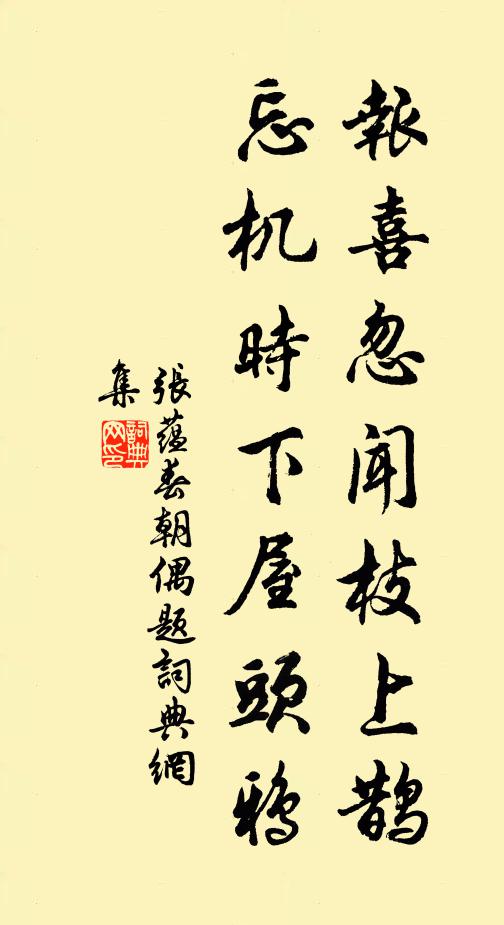 報喜忽聞枝上鵲
忘机時下屋頭鴉
張蘊春朝偶題詞典網
集
詞典
网印